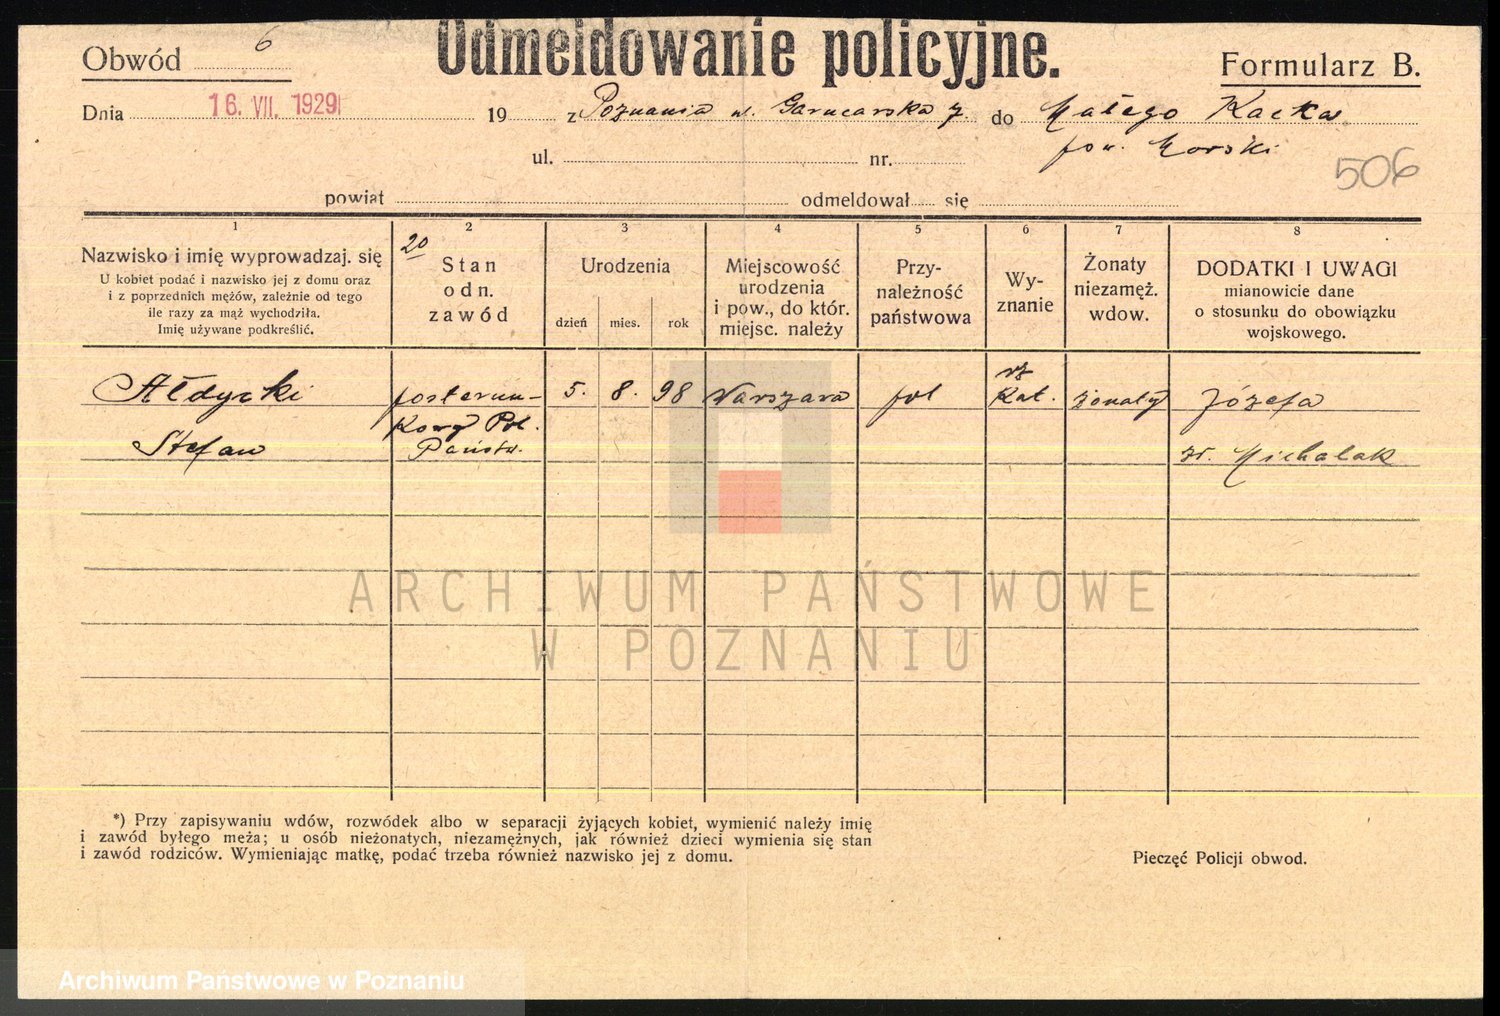 Obwód 6
Odmeldowanie policyjne.
Formularz B.
Dnia 16. VII. 1929 19 z Poznania u. Garncarska 7. do Małego Kacka
ul. nr. pow. Morski
506
powiat odmeldował się
1 2 3 4 5 6 7 8
20
Nazwisko i imię wyprowadzaj. się
U kobiet podać i nazwisko jej z domu oraz
i z poprzednich mężów, zależnie od tego
ile razy za mąż wychodziła.
Imię używane podkreślić.
Stan
odn.
zawód
Urodzenia
dzień mies. rok
Miejscowość
urodzenia
i pow., do któr.
miejsc. należy
Przy-
należność
państwowa
Wy-
znanie
Żonaty
niezamęż.
wdow.
DODATKI I UWAGI
mianowicie dane
o stosunku do obowiązku
wojskowego.
Ałdycki
Stefan
posterun-
Pol.
Państw.
5. 8. 98 Warszawa pol
rz
Kat. żonaty Józefa
Michalak
ARCHIWUM PAŃSTWOWE
W POZNANIU
*) Przy zapisywaniu wdów, rozwódek albo w separacji żyjących kobiet, wymienić należy imię
i zawód byłego meża; u osób nieżonatych, niezamężnych, jak również dzieci wymienia się stan
i zawód rodziców. Wymieniając matkę, podać trzeba również nazwisko jej z domu.
Pieczęć Policji obwod.
Archiwum Państwowe w Poznaniu